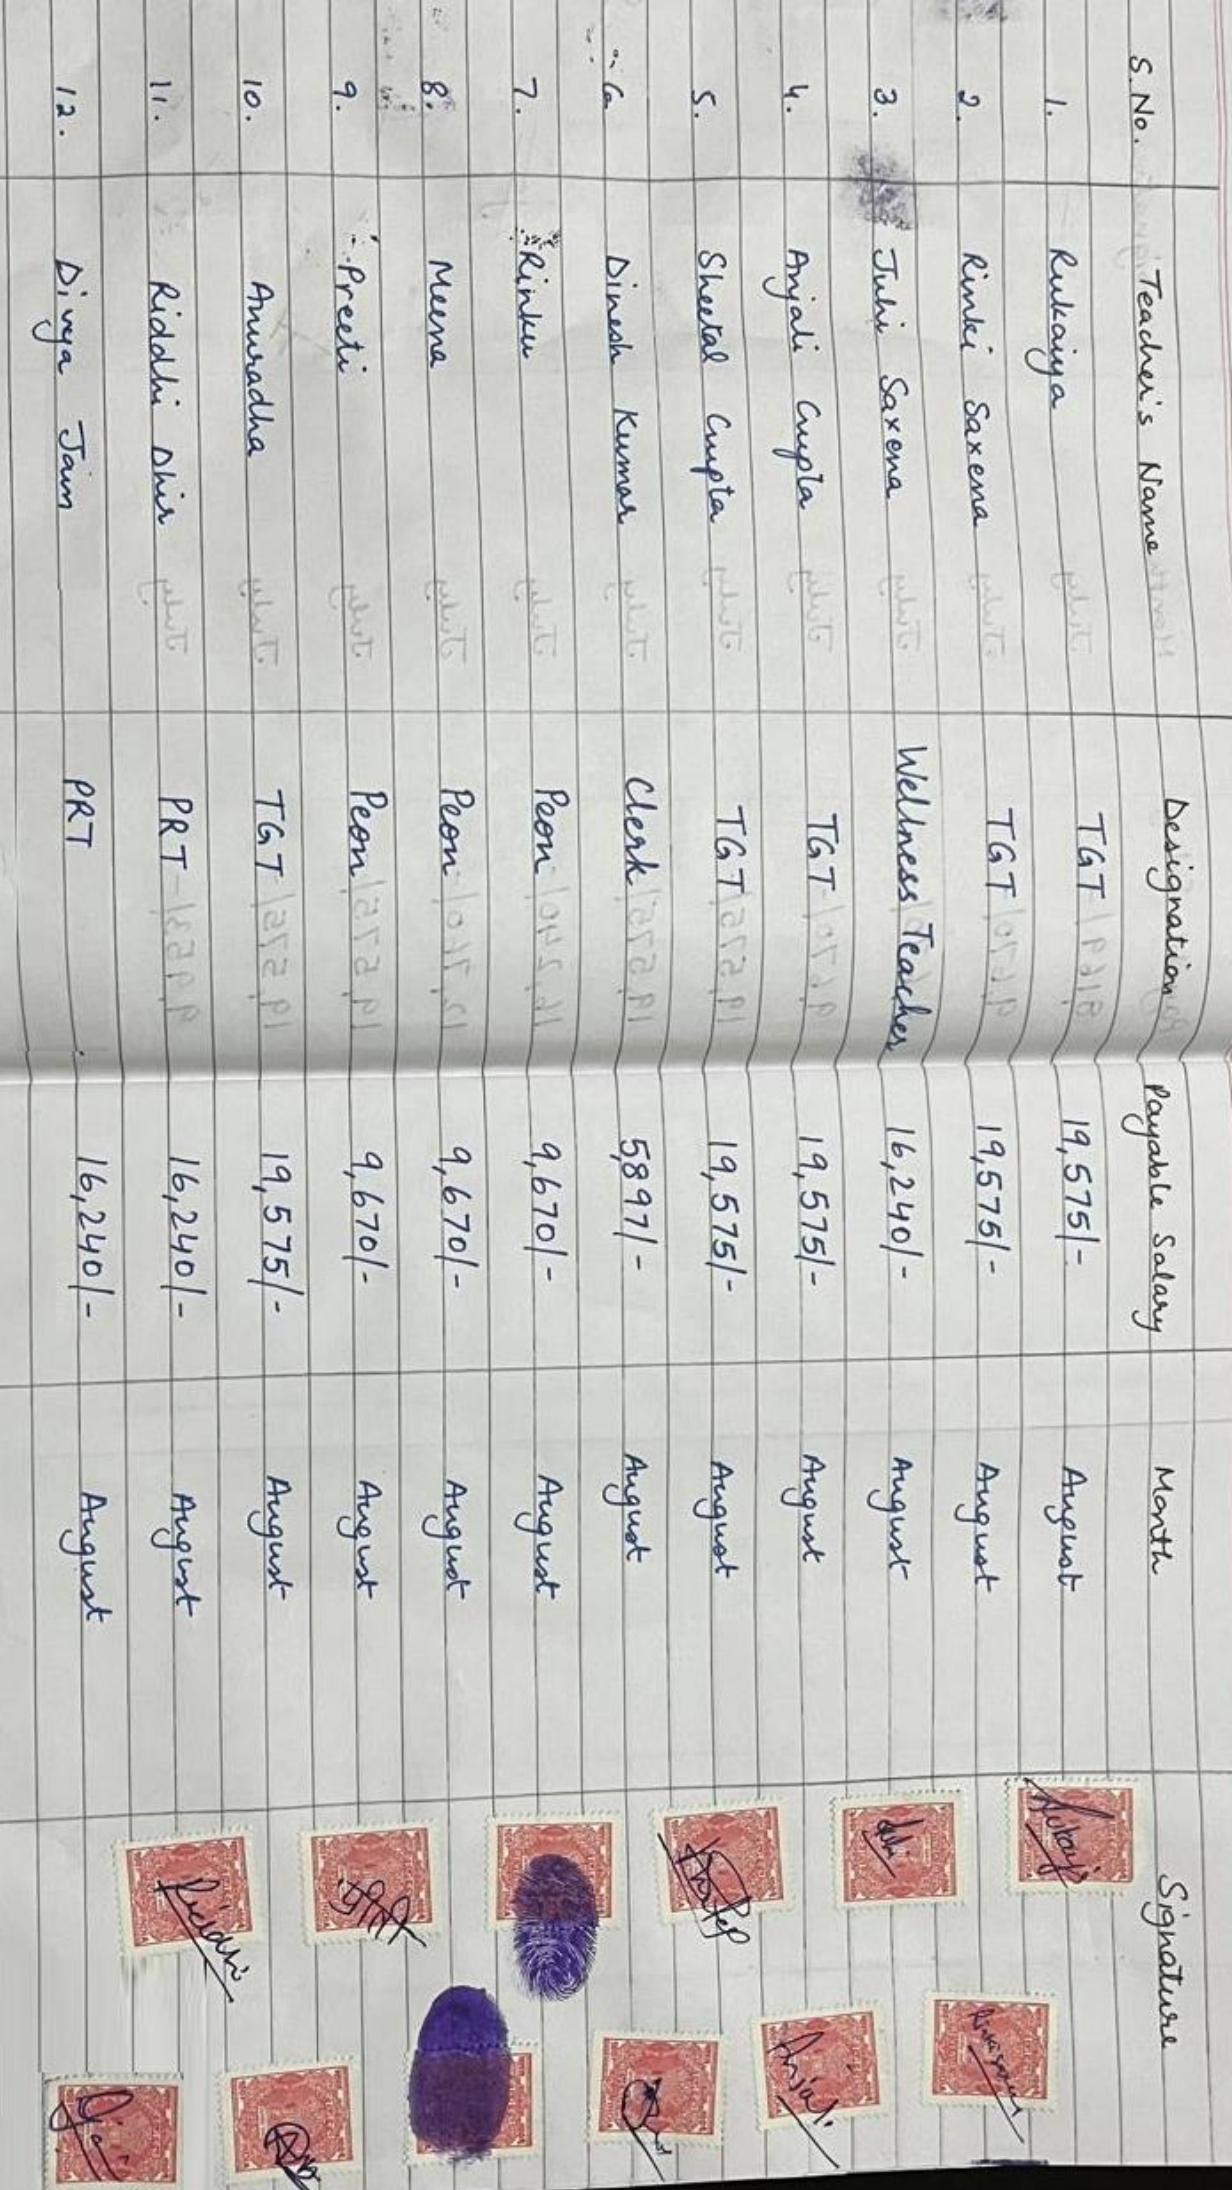 S.No. Teacher's Name Designation Payable Salary Month Signature
1. Rukaiya TGT 19,575/- August
2. Rinki Saxena TGT 19,575/- August
3. Juhi Saxena Wellness Teacher 16,240/- August Juhi
4. Anjali Gupta TGT 19,575/- August Anjali
5. Sheetal Gupta TGT 19,575/- August
6 Dinesh Kumar Clerk 5,897/- August
7. Rinku Peon 9,670/- August
8. Meena Peon 9,670/- August
9. Preeti Peon 9,670/- August
10. Anuradha TGT 19,575/- August
11. Riddhi Dhir PRT 16,240/- August Riddhi
12. Divya Jain PRT 16,240/- August